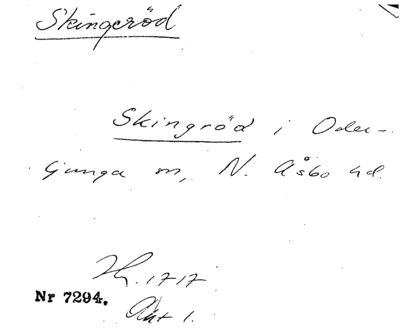 Skingeröd
Skingröd i Oder-
ljunga sn, N. Åsbo hd.
1717
Nr 7294. Akt 1.